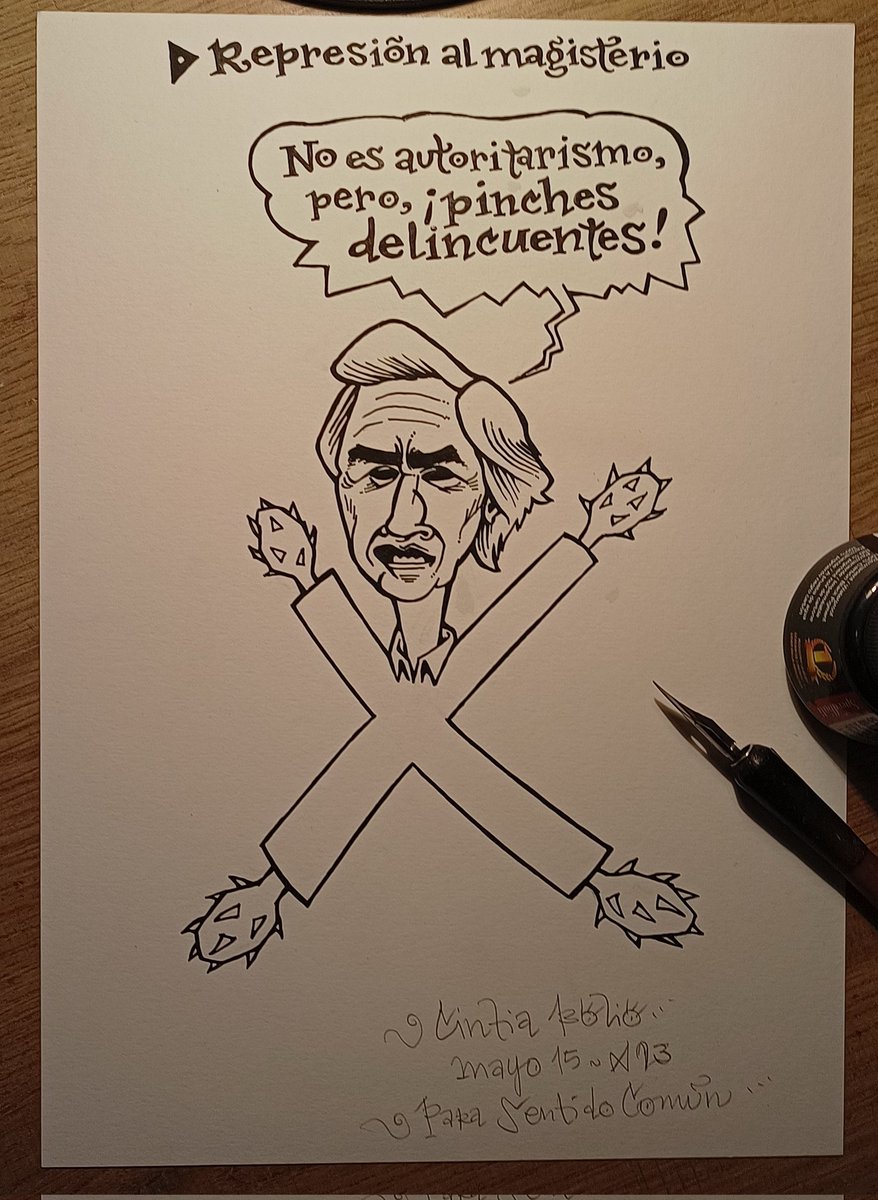 Represión al magisterio
No es autoritarismo,
pero, ¡pinches
delincuentes!
Cintia Bolio...
mayo 15
Para Sentido Común...